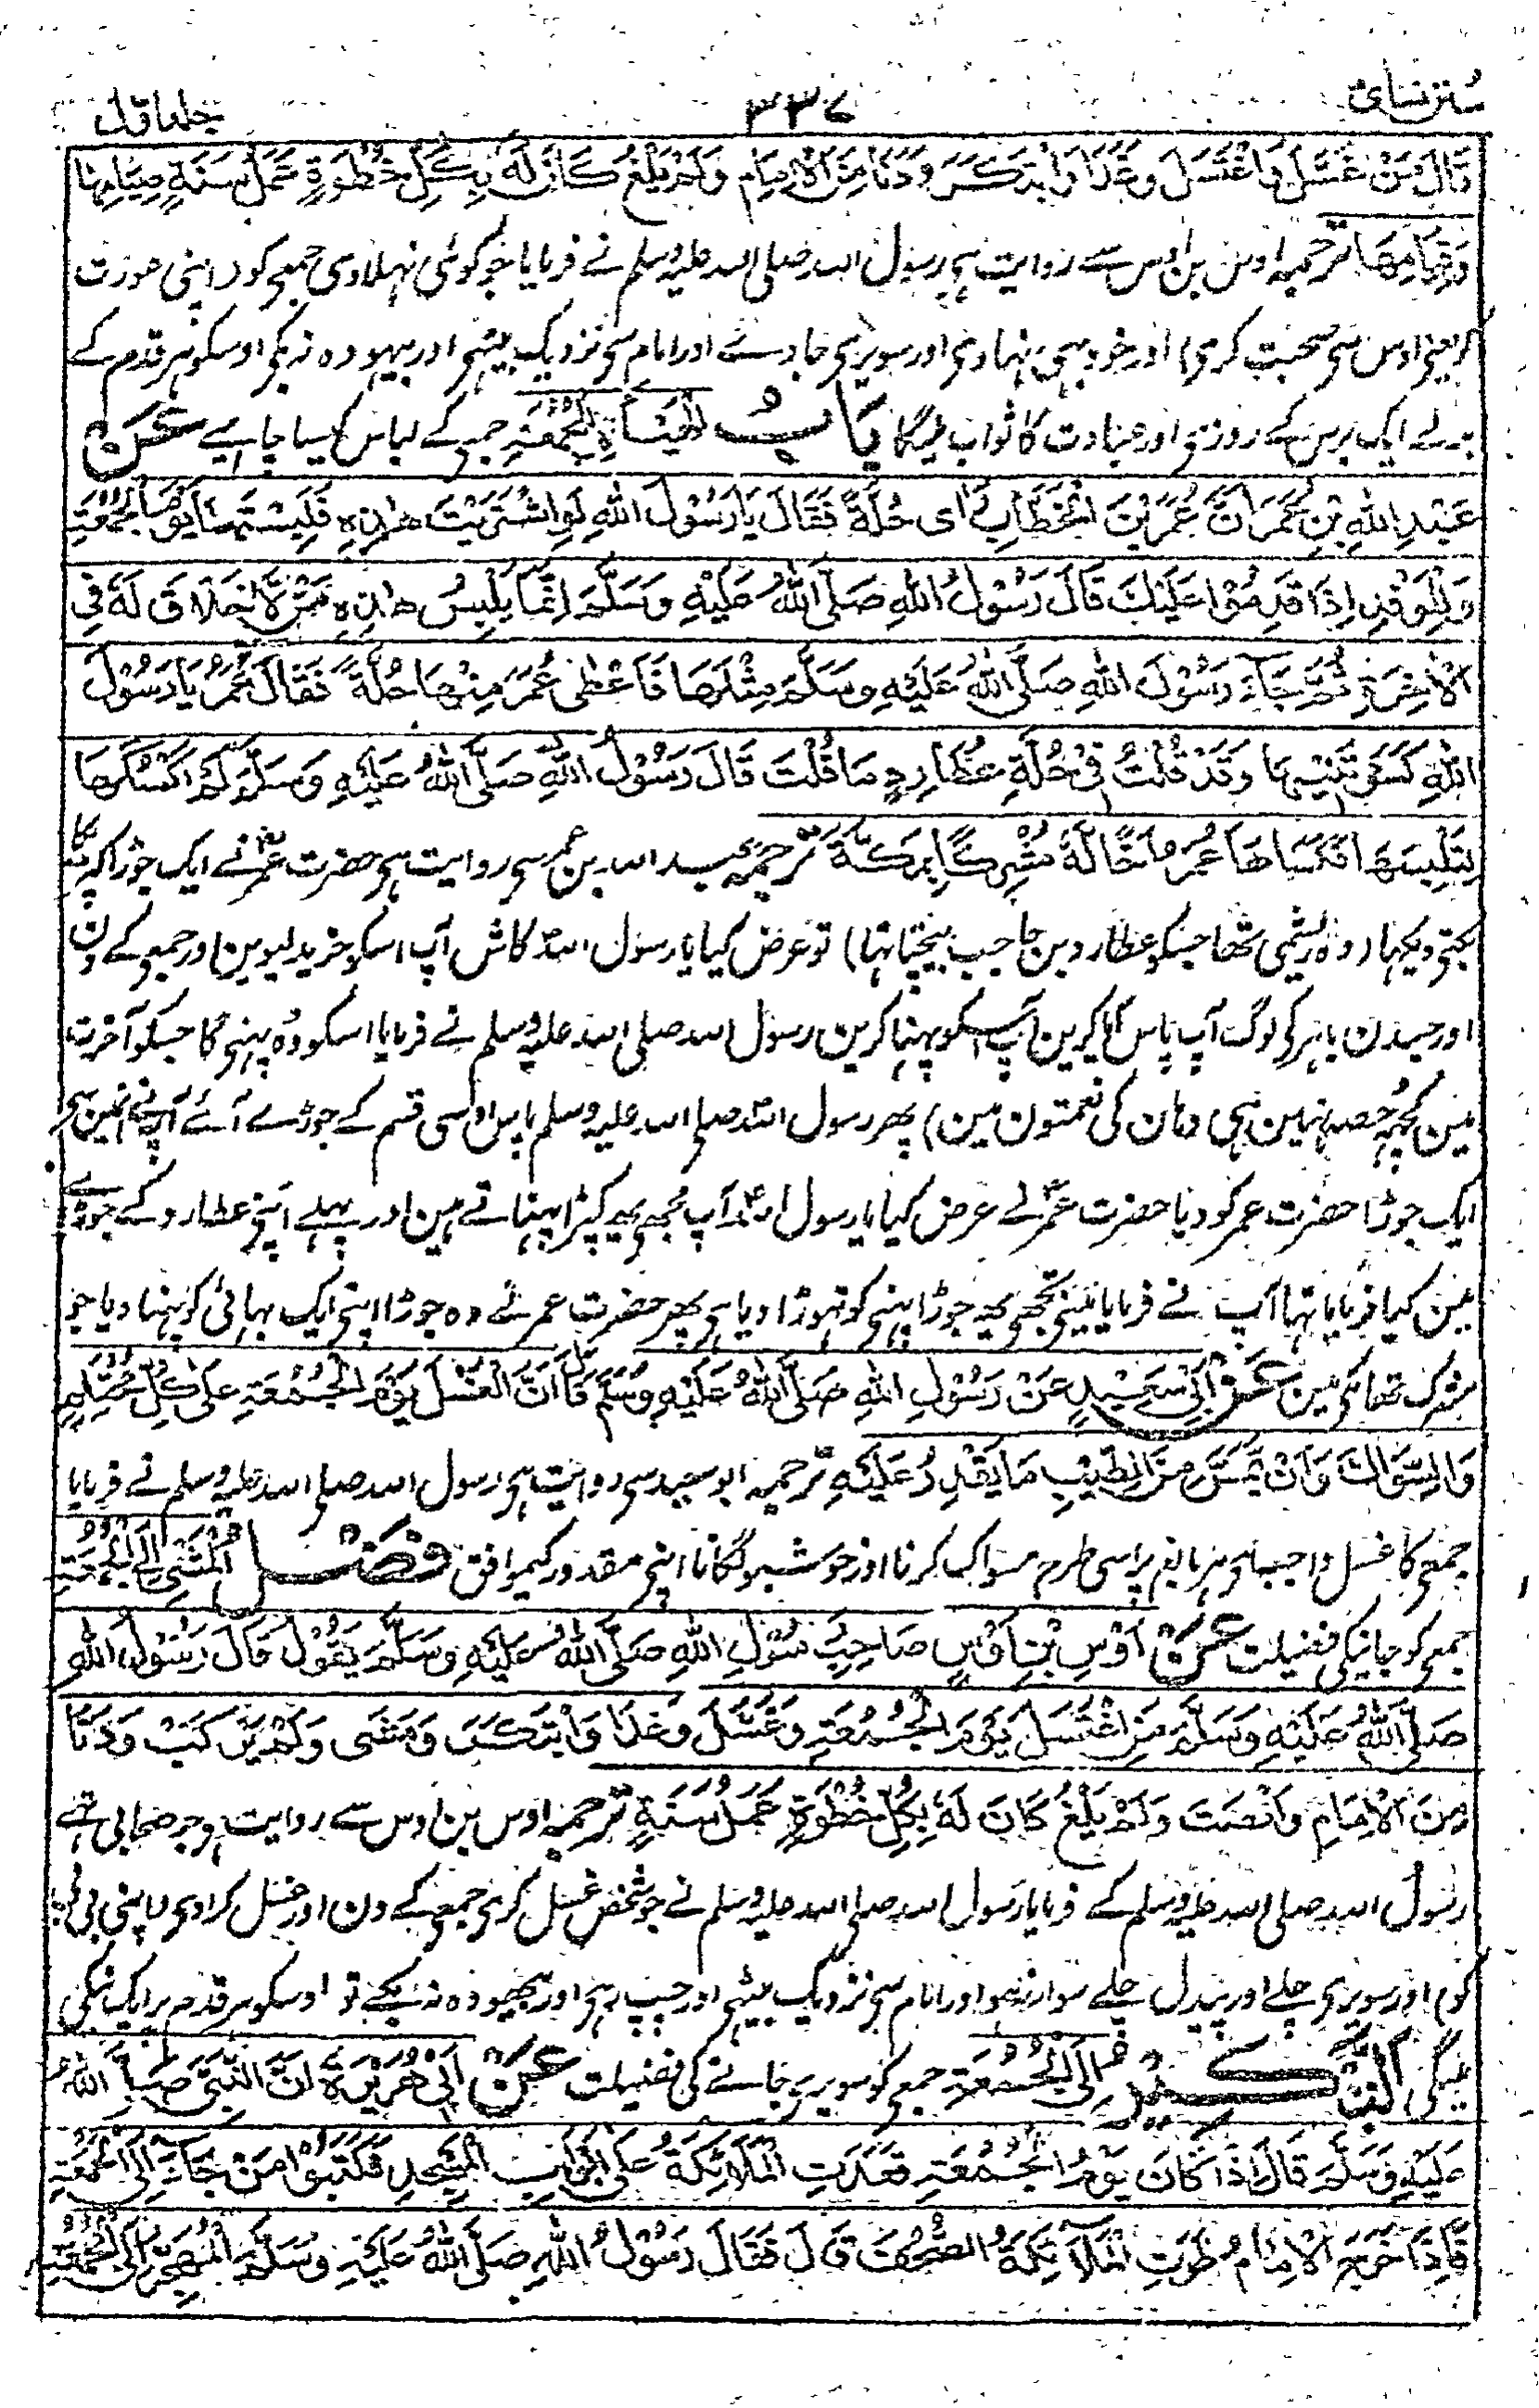 سنن نسائی ۳۳۷ جلد اول
قَالَ مَنْ غَسَّلَ وَاغْتَسَلَ وَغَدَا وَابْتَكَرَ وَدَنَا مِنَ الْاِمَامِ وَلَمْ يَلْغُ كَانَ لَهٗ بِكُلِّ خُطْوَةٍ عَمَلُ سَنَةٍ صِيَامِهَا
وَقِيَامِهَا ترجمہ اوس بن اوس سے روایت ہی رسول اللہ صلی اللہ علیہ وسلم نے فرمایا جو کوئی نہلاوی جمعی کو (اپنی عورت
کو یعنی اوس سی صحبت کری) اور خود بہی نہاوی اور سویری جاوے اور امام سی نزدیک بیٹہی اور بیہودہ نہ بکی اوسکو ہر قدم کے
بدلے ایک برس کے روزی اور عبادت کا ثواب ملیگا بَابُ الْهَيْأَةِ لِلْجُمُعَةِ جمعہ کے لباس کیسا چاہیے عَنْ
عَبْدِ اللهِ بْنِ عُمَرَ اَنَّ عُمَرَ بْنَ الْخَطَّابِ رَاٰى حُلَّةً فَقَالَ يَا رَسُوْلَ اللهِ لَوِ اشْتَرَيْتَ هٰذِهٖ فَلَبِسْتَهَا يَوْمَ الْجُمُعَةِ
وَلِلْوَفْدِ اِذَا قَدِمُوْا عَلَيْكَ قَالَ رَسُوْلُ اللهِ صَلَّى اللهُ عَلَيْهِ وَسَلَّمَ اِنَّمَا يَلْبِسُ هٰذِهٖ مَنْ لَّا خَلَاقَ لَهٗ فِى
الْاٰخِرَةِ ثُمَّ جَاءَ رَسُوْلَ اللهِ صَلَّى اللهُ عَلَيْهِ وَسَلَّمَ مِثْلُهَا فَاَعْطٰى عُمَرَ مِنْهَا حُلَّةً فَقَالَ عُمَرُ يَا رَسُوْلَ
اللهِ كَسَوْتَنِيْهَا وَقَدْ قُلْتَ فِىْ حُلَّةِ عُطَارِدٍ مَا قُلْتَ قَالَ رَسُوْلُ اللهِ صَلَّى اللهُ عَلَيْهِ وَسَلَّمَ لَمْ اَكْسُكَهَا
لِتَلْبِسَهَا فَكَسَاهَا عُمَرُ اَخًا لَهٗ مُشْرِكًا بِمَكَّةَ ترجمہ عبداللہ بن عمر سی روایت ہی حضرت عمر نے ایک جوڑا کپڑیکا
بکتی دیکہا (وہ ریشمی تھا جسکو عطارد بن حاجب بیچتا تہا) تو عرض کیا یا رسول اللہ کاش آپ اسکو خرید لیوین اور جمعی کے دن
اور جسدن باہر کی لوگ آپ پاس آیا کرین آپ اسکو پہنا کرین رسول اللہ صلی اللہ علیہ وسلم نے فرمایا اسکو وہ پہنیگا جسکو آخرت
مین کچہہ حصہ نہین ہی (وہان کی نعمتون مین) پھر رسول اللہ صلی اللہ علیہ وسلم پاس اوسی قسم کے جوڑے آئے آپنے انمین سی
ایک جوڑا حضرت عمر کو دیا حضرت عمر نے عرض کیا یا رسول اللہ آپ مجہی یہ کپڑا پہناتے ہین اور پہلے آپنی عطارد کے جوڑے
مین کیا فرمایا تہا آپ نے فرمایا مینی تجھی یہ جوڑا پہننی کو تہوڑا دیا ہی پھر حضرت عمر نے وہ جوڑا اپنی ایک بہائی کو پہنا دیا جو
مشرک تھا مکی مین عَنْ اَبِىْ سَعِيْدٍ عَنْ رَسُوْلِ اللهِ صَلَّى اللهُ عَلَيْهِ وَسَلَّمَ قَالَ اَنَّ الْغُسْلَ يَوْمَ الْجُمُعَةِ عَلٰى كُلِّ مُحْتَلِمٍ
وَالسِّوَاكَ وَاَنْ يَّمَسَّ مِنَ الطِّيْبِ مَا يَقْدِرُ عَلَيْهِ ترجمہ ابو سعید سی روایت ہی رسول اللہ صلی اللہ علیہ وسلم نے فرمایا
جمعی کا غسل واجب ہی ہر بالغ پر اسی طرح مسواک کرنا اور خوشبو لگانا اپنی مقدور کیموافق فَضْلُ الْمَشْىِ اِلَى الْجُمُعَةِ
جمعی کو جانیکی فضیلت عَنْ اَوْسِ بْنِ اَوْسٍ صَاحِبِ رَسُوْلِ اللهِ صَلَّى اللهُ عَلَيْهِ وَسَلَّمَ يَقُوْلُ قَالَ رَسُوْلُ اللهِ
صَلَّى اللهُ عَلَيْهِ وَسَلَّمَ مَنِ اغْتَسَلَ يَوْمَ الْجُمُعَةِ وَغَسَّلَ وَغَدَا وَابْتَكَرَ وَمَشٰى وَلَمْ يَرْكَبْ وَدَنَا
مِنَ الْاِمَامِ وَانْصَتَ وَلَمْ يَلْغُ كَانَ لَهٗ بِكُلِّ خُطْوَةٍ عَمَلُ سَنَةٍ ترجمہ اوس بن اوس سے روایت ہی جو صحابی تھے
رسول اللہ صلی اللہ علیہ وسلم کے فرمایا رسول اللہ صلی اللہ علیہ وسلم نے جو شخص غسل کری جمعی کے دن اور غسل کراوی (اپنی بی بی
کو) اور سویری چلے اور پیدل چلے سوار نہو اور امام سی نزدیک بیٹہی اور چپ رہی اور بیہودہ نہ بکے تو اوسکو ہر قدم پر ایک نیکی
ملیگی اَلتَّبْكِيْرُ اِلَى الْجُمُعَةِ جمعی کو سویری جانے کی فضیلت عَنْ اَبِىْ هُرَيْرَةَ اَنَّ النَّبِىَّ صَلَّى اللهُ
عَلَيْهِ وَسَلَّمَ قَالَ اِذَا كَانَ يَوْمُ الْجُمُعَةِ قَعَدَتِ الْمَلَائِكَةُ عَلٰى اَبْوَابِ الْمَسْجِدِ فَكَتَبُوْا مَنْ جَاءَ اِلَى الْجُمُعَةِ
فَاِذَا خَرَجَ الْاِمَامُ طَوَتِ الْمَلَائِكَةُ الصُّحُفَ قَالَ فَقَالَ رَسُوْلُ اللهِ صَلَّى اللهُ عَلَيْهِ وَسَلَّمَ الْمُهَجِّرُ اِلَى الْجُمُعَةِ